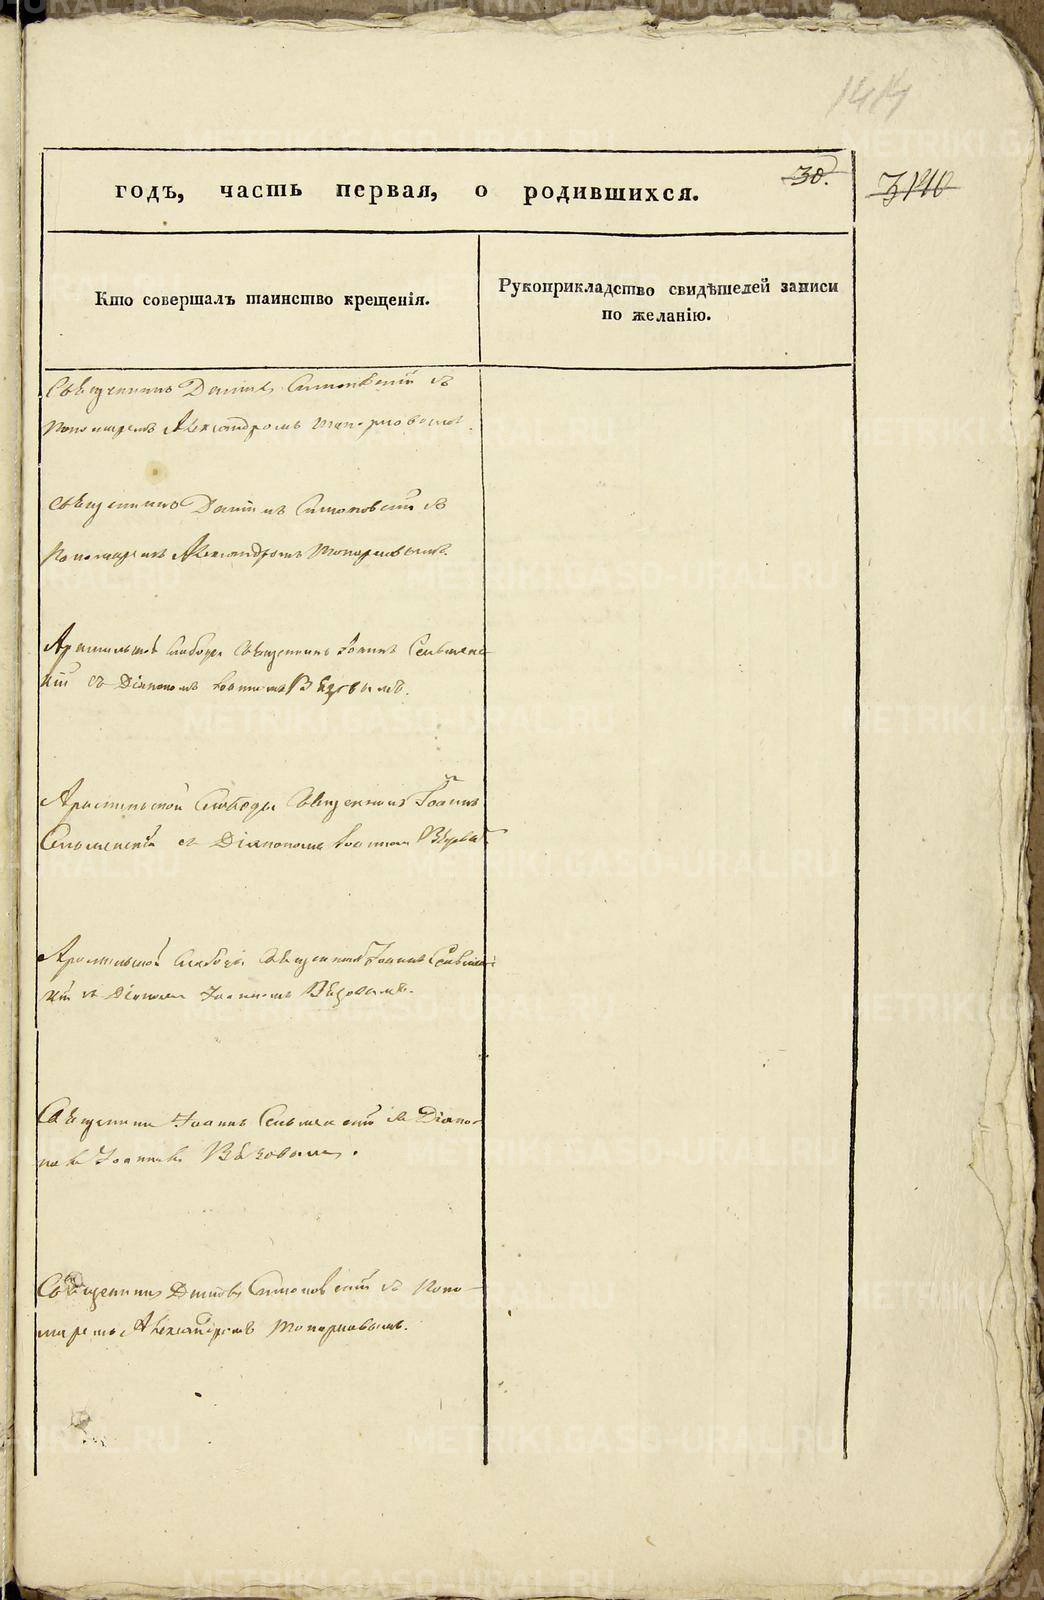 1414
30.
3140
годъ, часть первая, о родившихся.
Кто совершалъ таинство крещенія.
Рукоприкладство свидѣтелей записи
по желанію.
Священникъ Даніилъ Симоновскій съ
Пономаремъ Александромъ Топорковымъ.
Священникъ Даніилъ Симоновскій съ
Пономаремъ Александромъ Топорковымъ
Арамильской слободы Священникъ Іоаннъ
кій съ Діакономъ Іоанномъ Вѣковымъ.
Арамильской Слободы Священникъ Іоаннъ
съ Діакономъ Іоанномъ
Арамильской слободы Священникъ Іоаннъ
кій съ Діакономъ Іоанномъ Вѣковымъ.
Священникъ Іоаннъ съ Діако-
номъ Іоанномъ Вѣковымъ.
Священникъ Даніилъ Симоновскій съ Поно-
маремъ Александромъ Топорковымъ.
METRIKI.GASO-URAL.RU